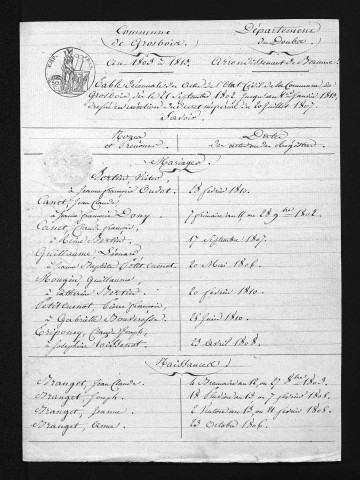 Commune
de Grosbois.
Département
du Doubs.
An 1803 à 1813.
Arrondissement de Baume.
Table Décennale des Actes de l'Etat Civil de la Commune de
Grosbois, dès le 21 Septembre 1802 jusqu'au 1er Janvier 1813,
dressée en exécution du Décret impérial du 20 Juillet 1807.
Savoir.
Noms
et Prénoms
Dates
des actes ou des Registres
Mariages.
Bertin, Victor
à Jeanne françoise Oudot. 28 février 1810.
Canet, Jean Claude,
à Jeanne françoise Dony 7 frimaire an 11 ou 28 9bre 1802.
Canet, Claude françois,
à Reine Bertin. 17 Septembre 1807.
Guillaume Léonard
à Jeanne Baptiste Petitcuenot. 20 Mai 1806.
Mougin, Guillaume
à Catherine Bertin. 20 février 1810.
Petitcuenot, Pierre françois,
à Gabrielle 28 Juin 1810.
Claude Joseph,
à Josephine 23 Avril 1808.
Naissances.
Branget, Jean Claude. 4 Brumaire an 12 ou 27 8bre 1803.
Branget, Joseph. 18 Pluviose an 13 ou 7 février 1805.
Branget, Jeanne.
Branget, Anne. 23 Octobre 1806.